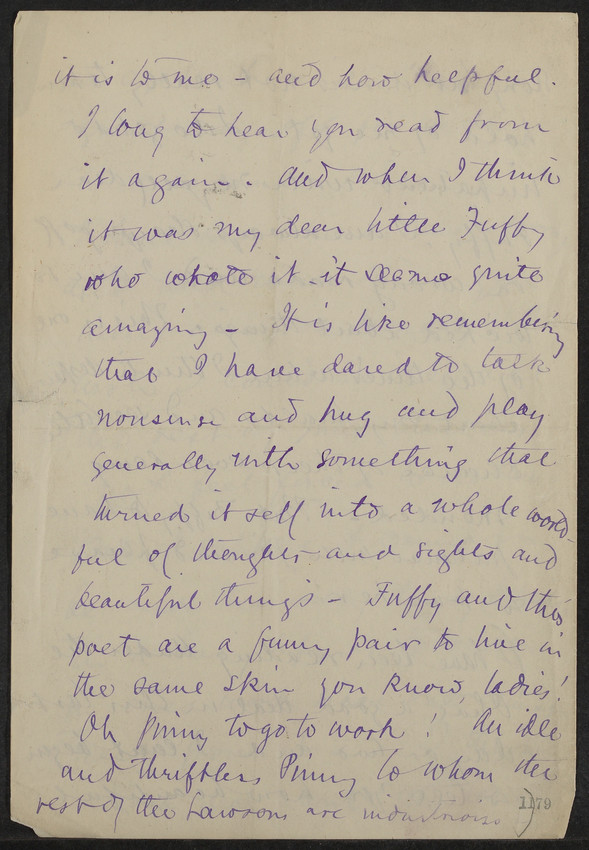 it is to me - and how helpful.
I long to hear you read from
it again. And when I think
it was my dear little Fuffy
who wrote it - it seems quite
amazing - It is like remembering
that I have dared to talk
nonsense and hug and play
generally with something that
turned itself into a whole world-
ful of thoughts and sights and
beautiful things - Fuffy and this
poet are a funny pair to live in
the same skin you know, ladies!
Oh Pinny to go to work! An idle
and thriftless Pinny to whom the
rest of the Lawsons are industrious)
1179